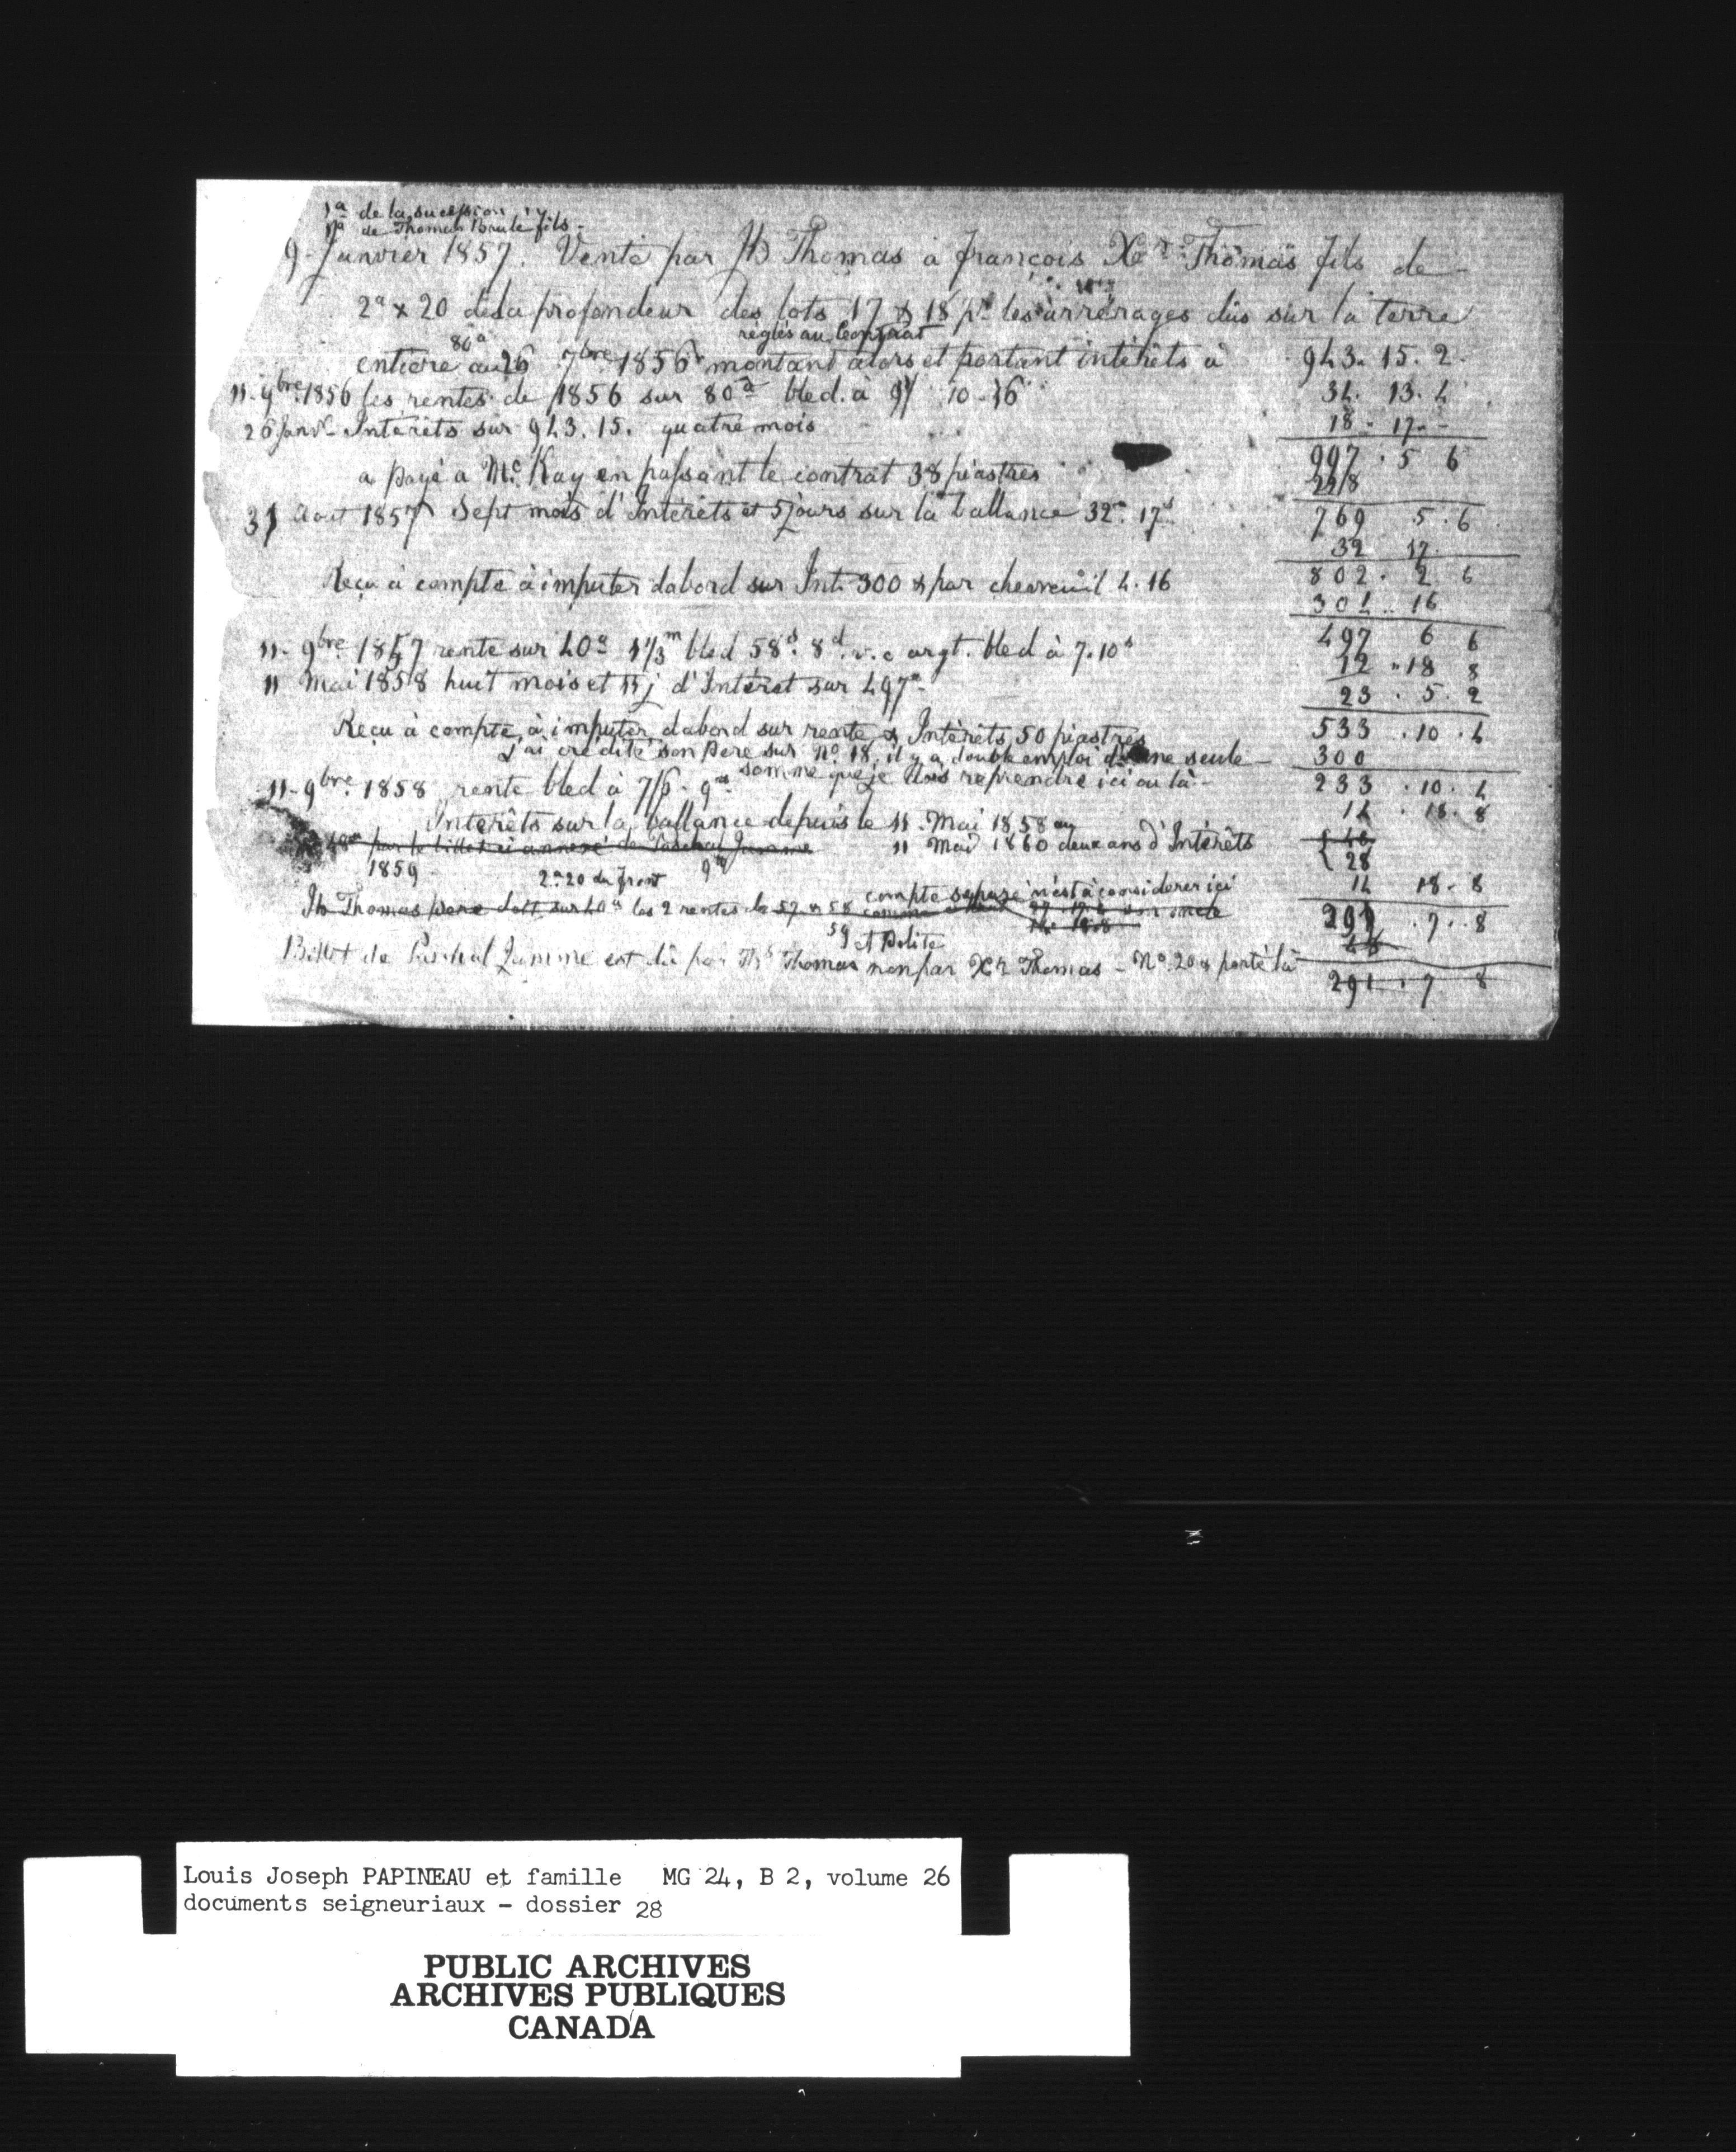 1a de la succession
1a de Thomas Brulé fils -
9 Janvier 1857. Vente par JB Thomas à françois Xer Thomas fils de
2a x 20 de la profondeur des lots 17 & 18 pr les arrérages dûs sur la terre
80a réglés au Contrat
entière au 26 7bre 1856 montant alors et portant intérêts à 943. 15. 2
11. 9bre 1856 les rentes de 1856 sur 80a bled à 9/ 10-16 34. 13. 4
26 Janvr Intérêts sur 943. 15. quatre mois 18. 17. -
997. 5 6
a payé a Mc Kay en passant le contrat 38 piastres 228
31 Aout 1857 Sept mois d'Intérêts et 5 jours sur la ballance 32". 17s 769 5. 6
32 17
Reçu à compte à imputer dabord sur Int. 300 & par chevreuil 4. 16 802. 2 6
304. 16
11- 9bre 1857 rente sur 40a 1 1/3m bled 58s. 8d. v. c argt. bled à 7.10s 497 6 6
12 "18 8
11 Mai 1858 huit mois et 11 j d'Intéret sur 497" 23. 5. 2
Reçu à compte, à imputer dabord sur rente & Intérêts 50 piastres 533. 10. 4
j'ai crédité son père sur No. 18, il y a double emploi d'une seule 300
somme que je dois reprendre ici ou là -
11- 9bre 1858 rente bled à 7/6 - 9" 233. 10. 4
14. 18. 8
Intérêts sur la ballance depuis le 11. Mai 1858 au
par le billet ci annexé de Paschal Jamme 11 Mai 1860 deux ans d'Intérêts 48
28
1859 2a 20 du front 14 18. 8
compte séparé n'est à considerer ici
Jb Thomas père doit sur 40a les 2 rentes de 57 & 58 son oncle 291. 7. 8
59 et Polite 48
Billet de Paschal Jamme est dû par Ths Thomas non par Xr Thomas - No. 20 & porté là
291. 7 8
Louis Joseph PAPINEAU et famille MG 24, B 2, volume 26
documents seigneuriaux - dossier 28
PUBLIC ARCHIVES
ARCHIVES PUBLIQUES
CANADA